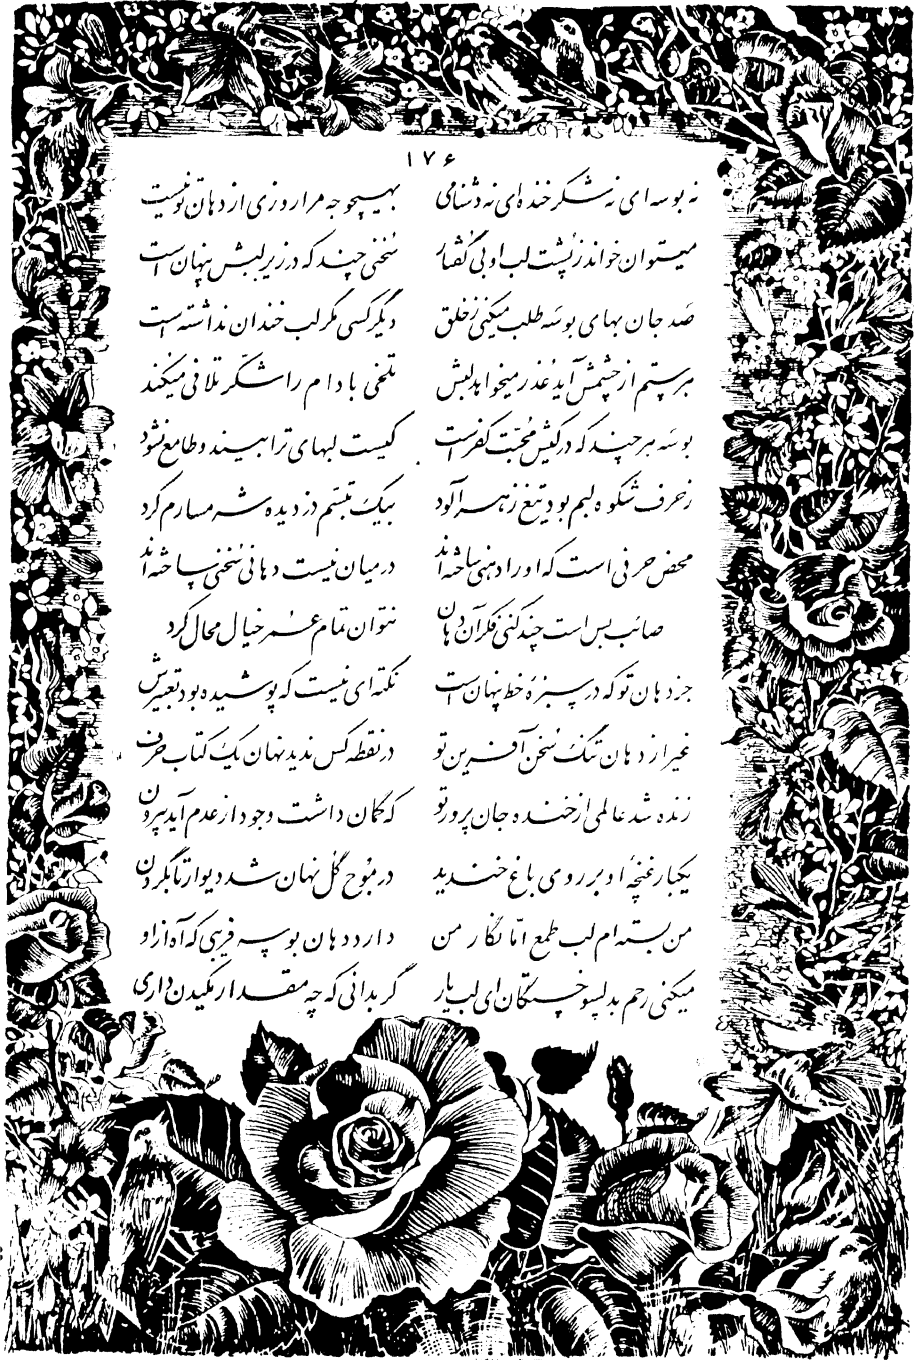 ۱۷۶
نه بوسه ای نه شکر خنده ای نه دشنامی بهیچوجه مرا روزی از دهان تو نیست
میتوان خواند ز پشت لب او بی گفتار سخنی چند که در زیر لبش پنهان است
صد جان بهای بوسه طلب میکنی ز خلق دیگر کسی مگر لب خندان نداشته است
هر ستم از چشمش آید عذر میخواهد لبش تلخی بادام را شکر تلافی میکند
بوسه هر چند که در کیش محبت کفر است کیست لبهای ترا بیند و طامع نشود
ز حرف شکوه لبم بود تیغ زهر آلود بیک تبسم دزدیده شرمسارم کرد
محض حرفی است که او را دهنی ساخته اند در میان نیست دهانی سخنی ساخته اند
صائب بس است چند کنی فکر آن دهان نتوان تمام عمر خیال محال کرد
جز دهان تو که در سبزه خط پنهان است نکته ای نیست که پوشیده بود تعبیرش
غیر از دهان تنگ سخن آفرین تو در نقطه کس ندید نهان یک کتاب حرف
زنده شد عالمی از خنده جان پرور تو که گمان داشت وجود از عدم آید بیرون
یکبار غنچه او بر روی باغ خندید در موج گل نهان شد دیوار تا بگردن
من بسته ام لب طمع اما نگار من دارد دهان بوسه فریبی که آه از او
میکنی رحم بدلسوختگان ای لب یار گر بدانی که چه مقدار مکیدن داری